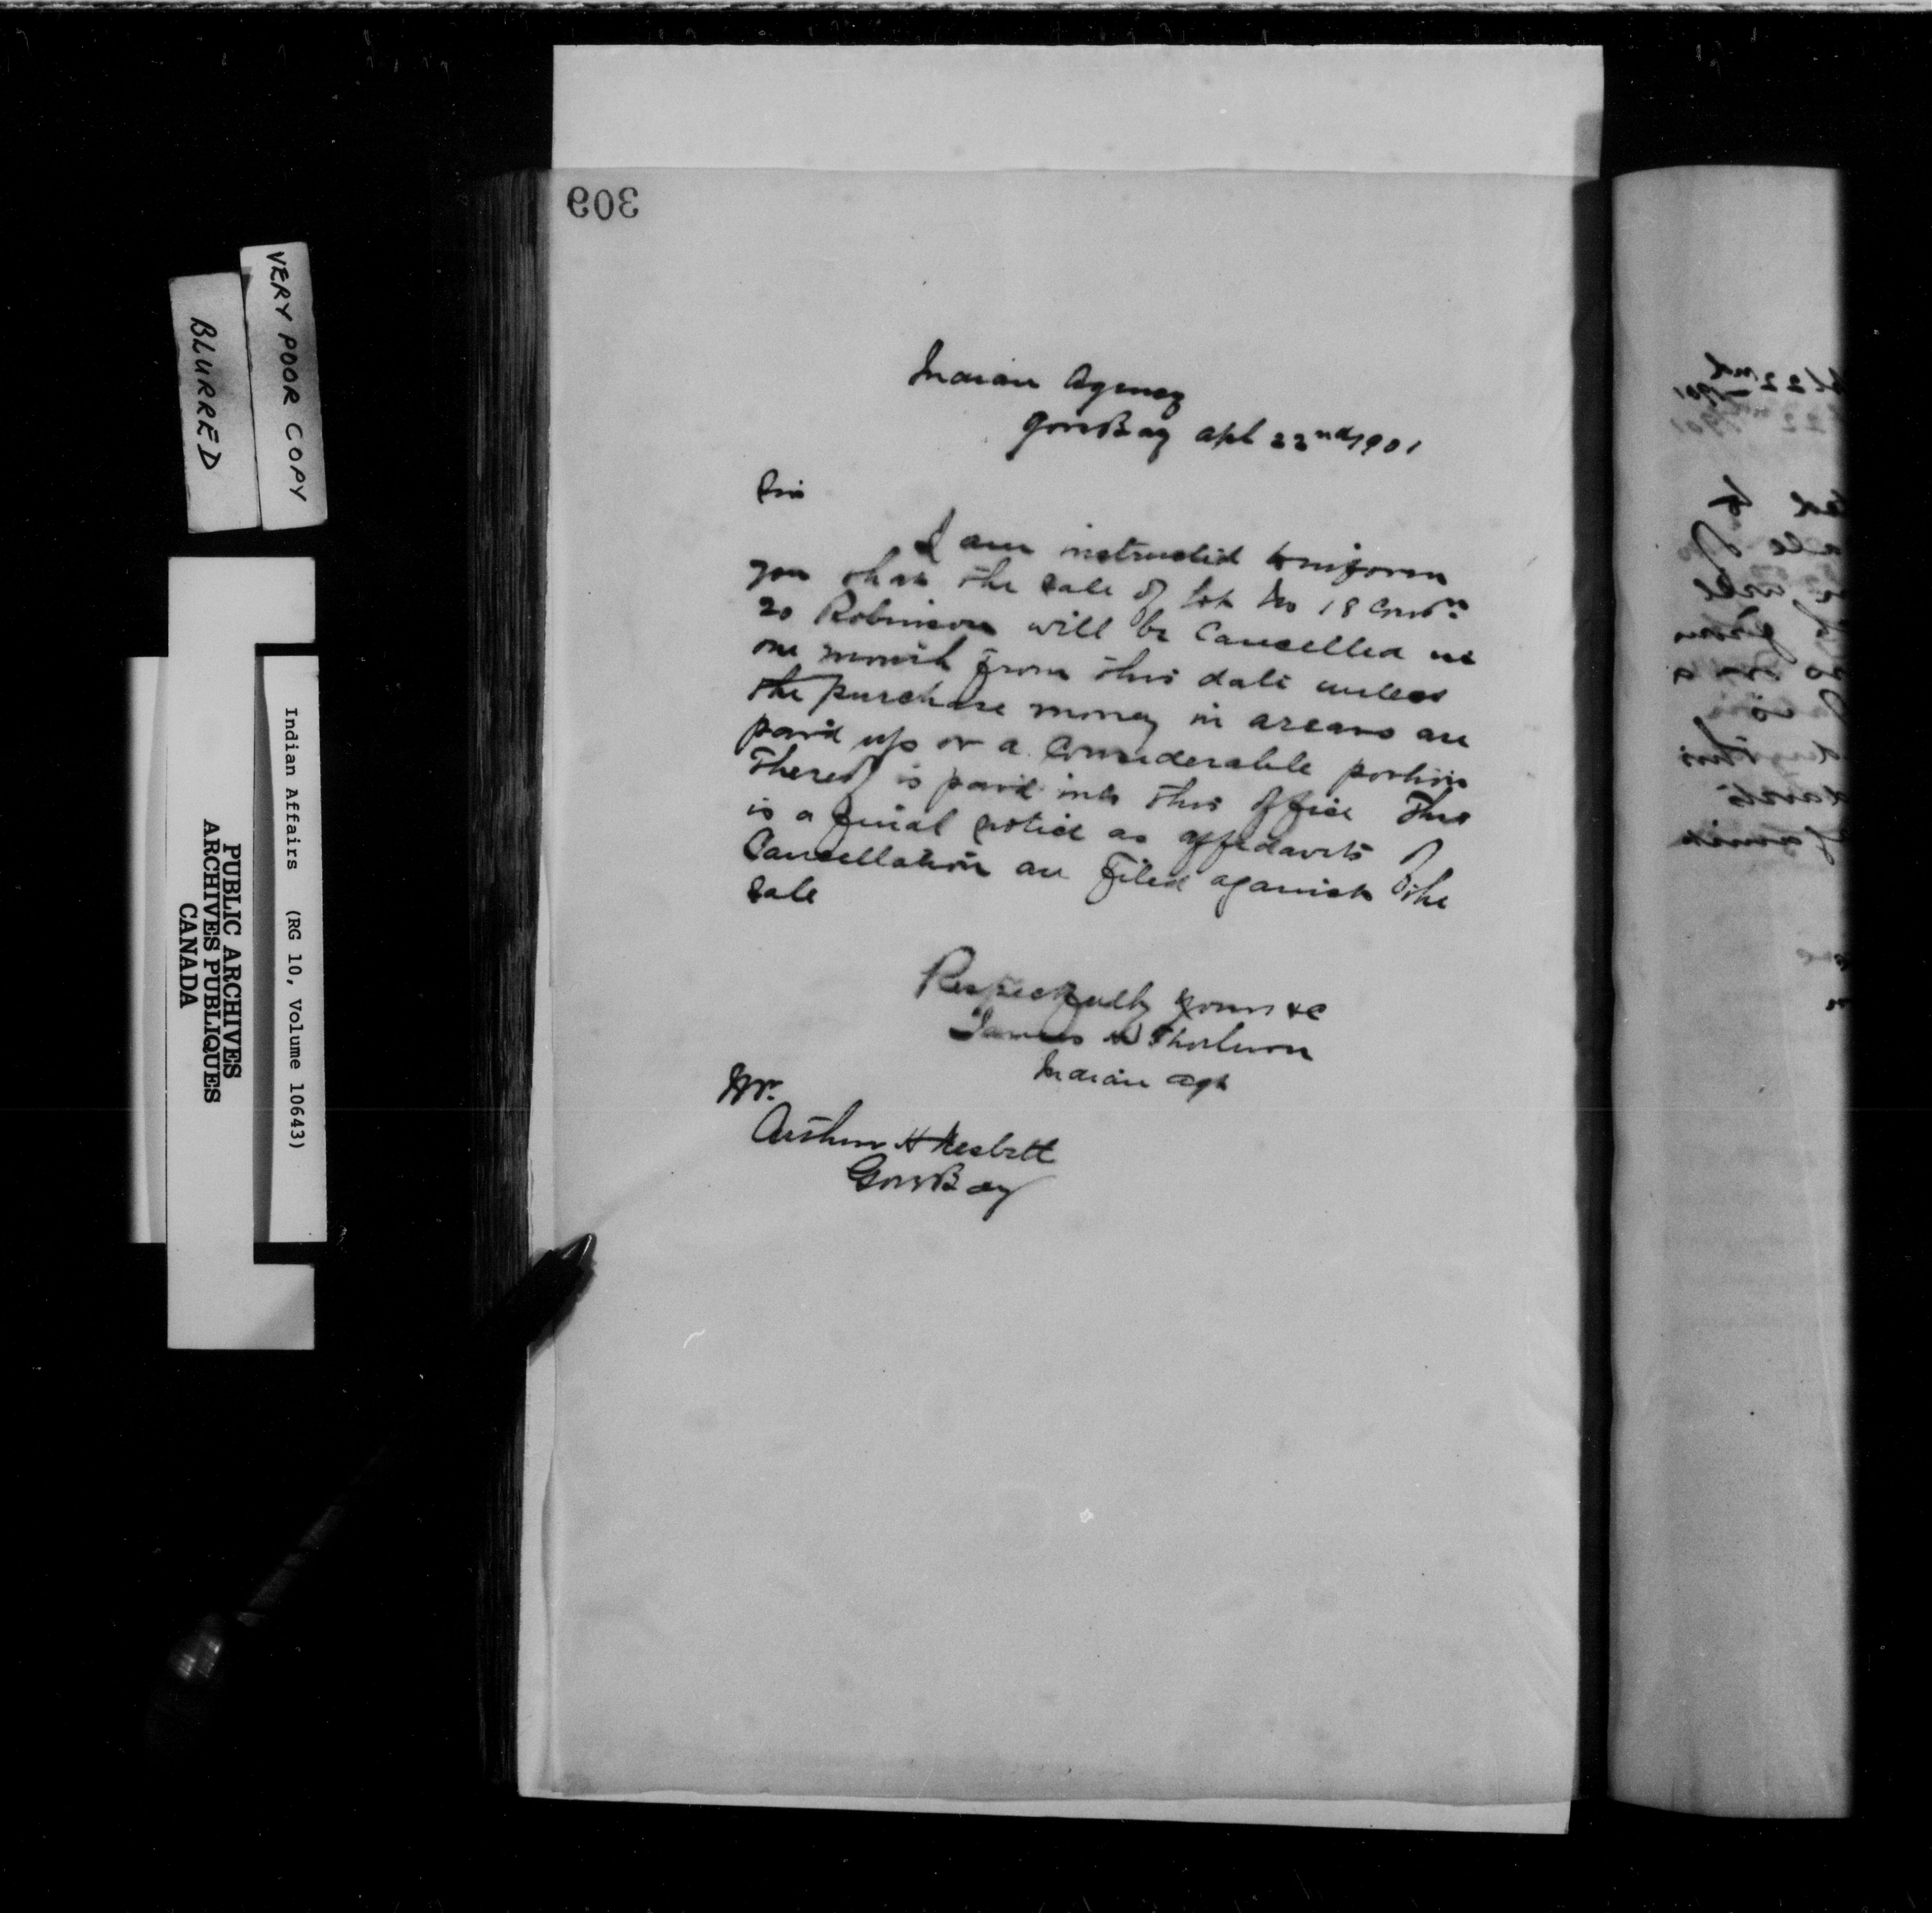 309
VERY POOR COPY
BLURRED
Indian Affairs (RG 10, Volume 10643)
PUBLIC ARCHIVES
ARCHIVES PUBLIQUES
CANADA
Indian Agency
Gore Bay Apl 22nd 1901
Sir
I am instructed to inform
you that the sale of lot No 18 Consn
20 Robinson will be Cancelled in
one month from this date unless
the purchase money in arears are
paid up or a Considerable portion
thereof is paid into this office This
is a final notice as affedavits of
Cancellation are filed against the
sale
Respectfully yours &c
James H Thorburn
Indian Agt
Mr.
Arthur H Nesbitt
Gore Bay